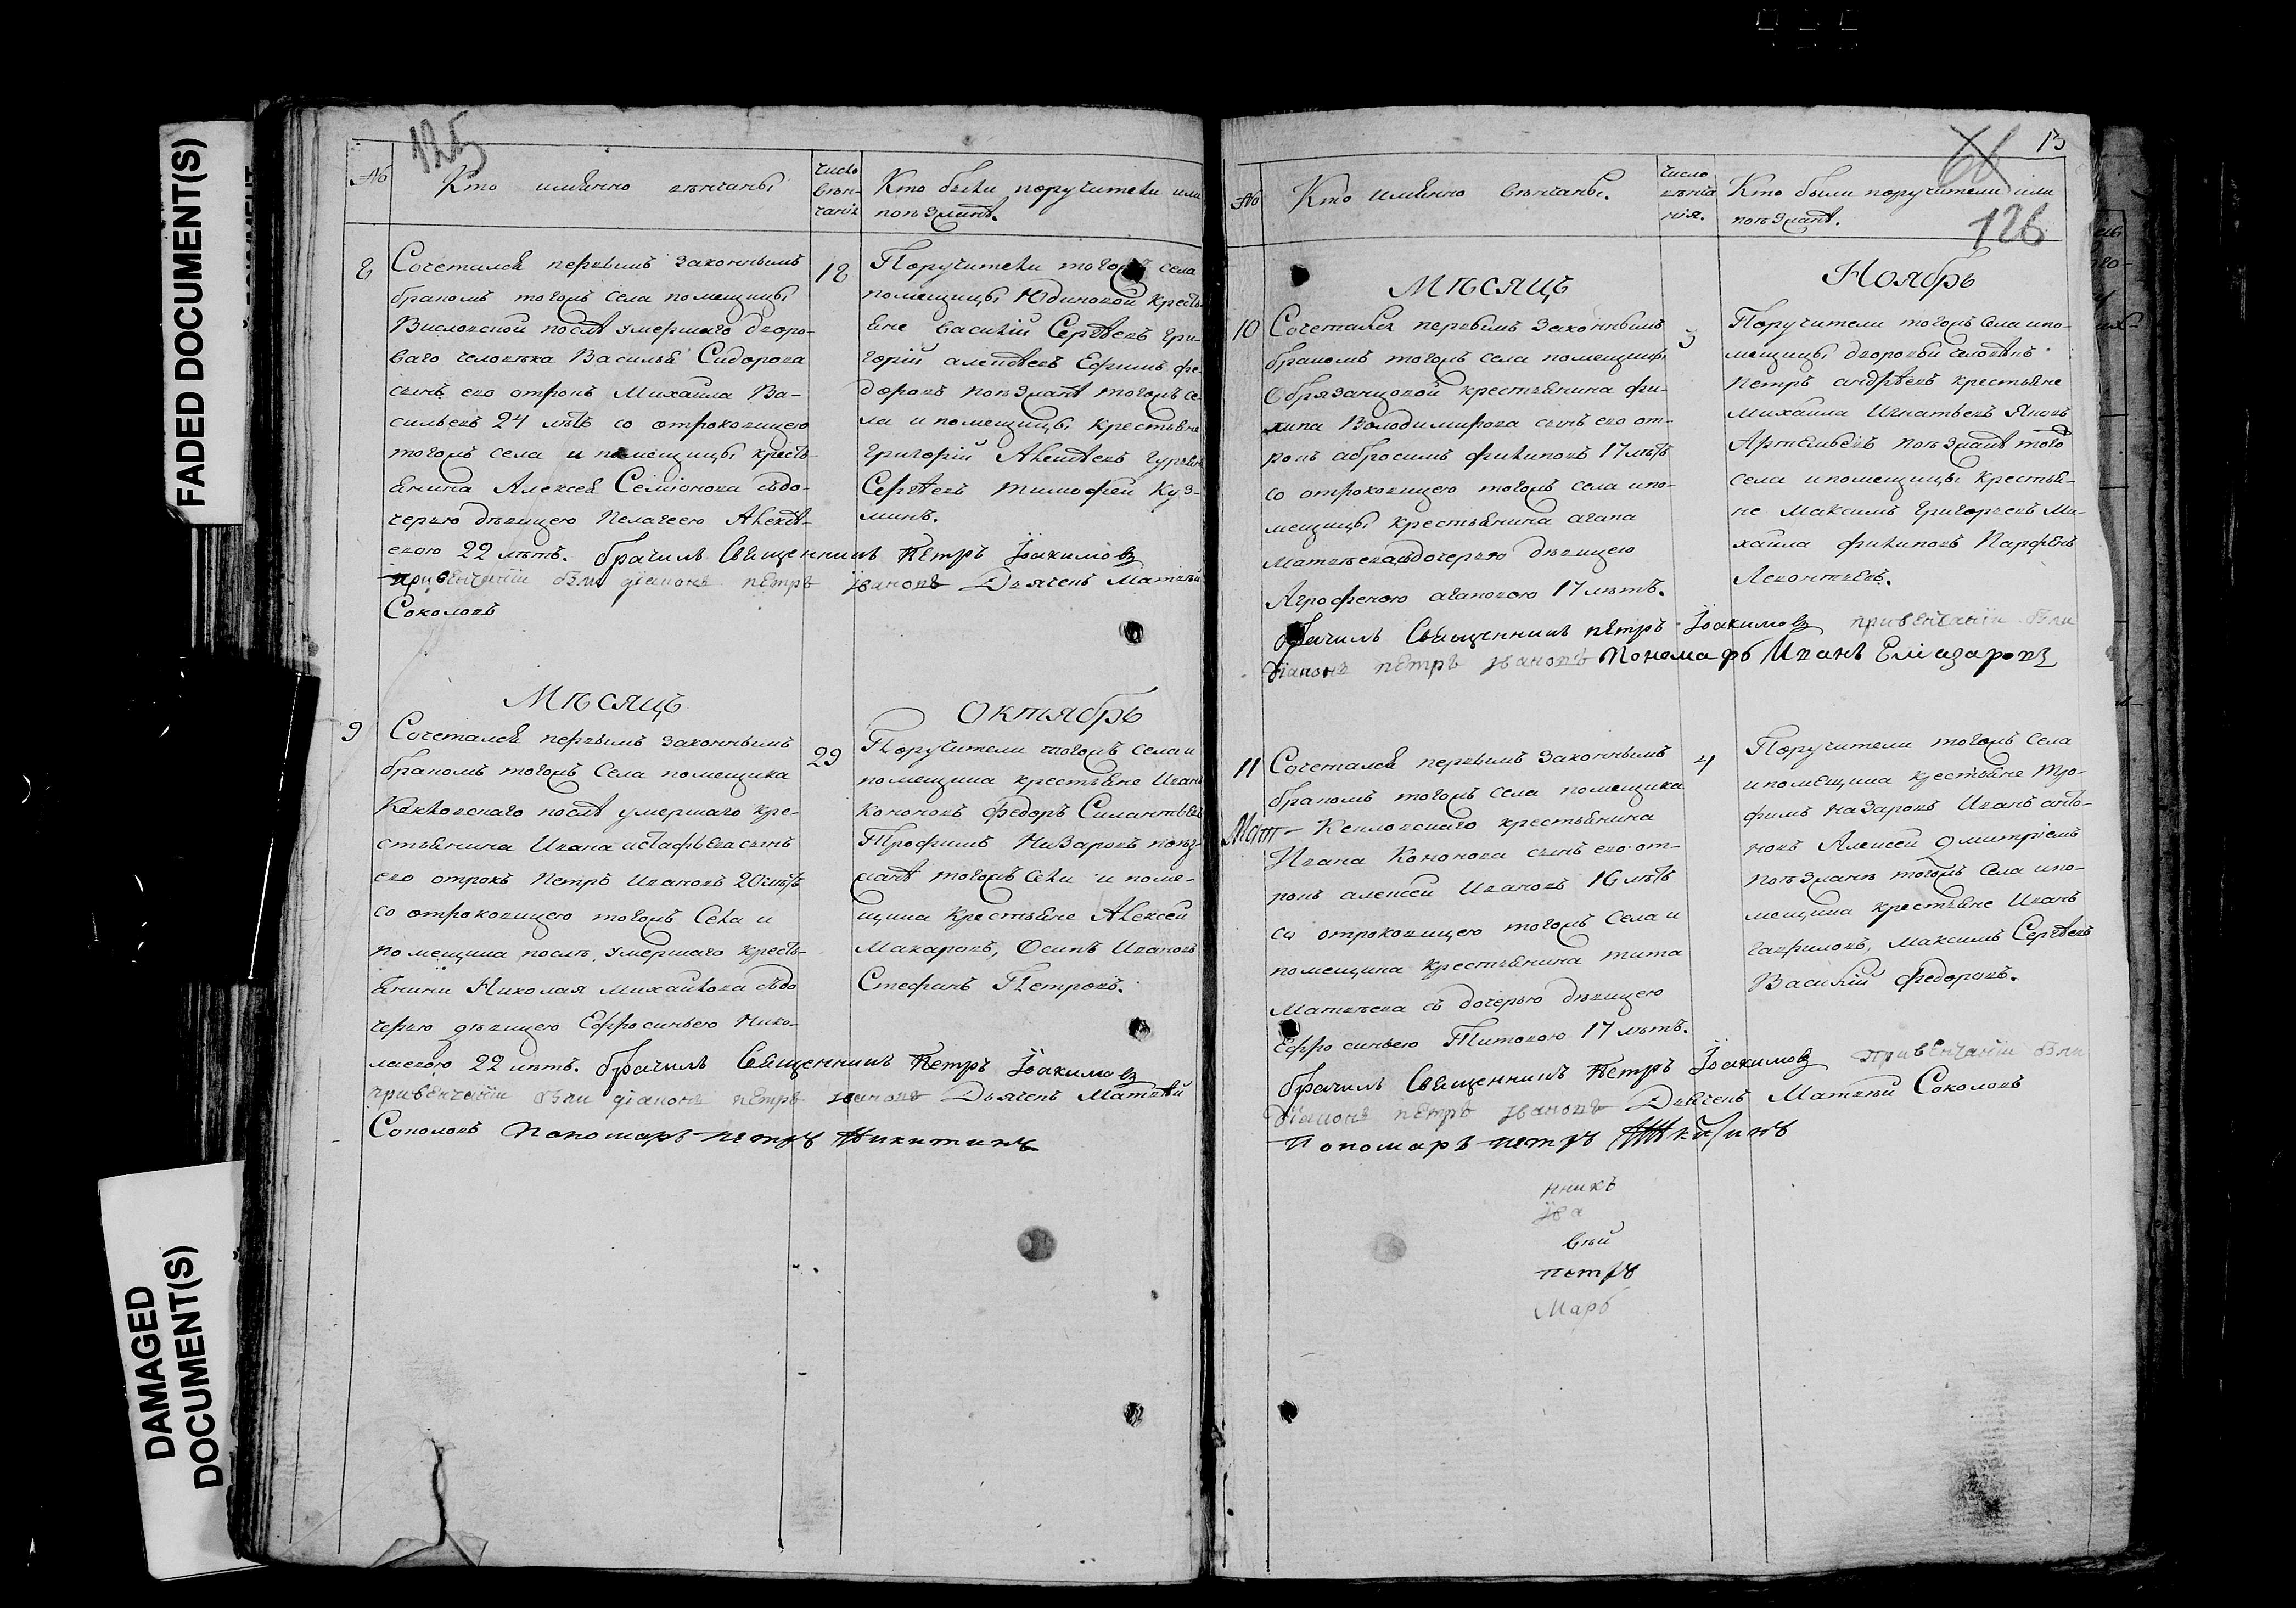 FADED DOCUMENT(S)
DAMAGED
DOCUMENT(S)
125
№
Кто имѣнно вѣнчаны
число
вѣн-
чанiя
Кто были поручители или
поѣзжанѣ.
8
Сочетался первымъ законнымъ
бракомъ тогожъ села помещицы
Висловской послѣ умершаго дворо-
ваго человѣка Василья Сидорова
сынъ его отрокъ Михайла Ва-
сильевъ 24 лѣтъ со отроковицею
тогожъ села и помещицы кресть-
янина Алексея Семiонова съдо-
черью дѣвицею Пелагеею Алексѣ-
евою 22 лѣтъ. брачилъ Священникъ Петръ Iоакимовъ
привенчанiи были дiаконъ петръ ивановъ Дьячекъ Матвѣй
Соколовъ
18
Поручители тогожъ села
помещицы Юдиновой кресть-
яне василiй Сергѣевъ гри-
горiй алексѣевъ Ефимъ фе-
доровъ поѣзжанѣ тогожъ се-
ла и помещицы крестьяне
григорiй Алексѣевъ гурьянъ
Сергѣевъ тимофей Куз-
минъ.
Мѣсяцъ
Октябрь
9
Сочетался первымъ законнымъ
бракомъ тогожъ Села помещика
послѣ умершаго кре-
стьянина Ивана астафьева сынъ
его отрокъ Петръ Ивановъ 20 лѣтъ
со отроковицею тогожъ Села и
помещика послѣ умершаго кресть-
янина Николая михайлова съдо
черью дѣвицею Ефросиньею Нико-
лаевою 22 лѣтъ. брачилъ Священникъ Петръ Iоакимовъ
привенчанiи были дiаконъ петръ ивановъ Дьячекъ Матвѣй
Соколовъ Пономарь петръ Никитинъ
29
Поручители тогожъ села и
помещика крестьяне Иванъ
Кононовъ Федоръ Силантьевъ
Трофимъ Назаровъ поѣз-
жанѣ тогожъ села и поме-
щика Крестьяне Алексей
Макаровъ, Осипъ Ивановъ
Стефанъ Петровъ.
13
66
126
№
Кто имѣнно вѣнчаны.
Число
вѣнча
нiя.
Кто были поручители или
поѣзжанѣ.
Мѣсяцъ
Ноябрь
10
Сочетался первымъ законнымъ
бракомъ тогожъ села помещицы
Обрязанцовой крестьянина фи-
липа Володимирова сынъ его от-
рокъ абросимъ филиповъ 17 лѣтъ
со отроковицею тогожъ села ипо-
мещицы крестьянина агапа
Матвѣева здочерью дѣвицею
Агрофеною агаповою 17 лѣтъ.
брачилъ Священникъ петръ Iоакимовъ привенчанiи были
дiаконъ петръ ивановъ Пономарь Иванъ Елиазаровъ
3
Поручители тогожъ села ипо-
мещицы дворовый человѣкъ
петръ андрѣевъ крестьяне
михайла Игнатьевъ Яковъ
поѣзжанѣ того
села ипомещицы крестья-
не Максимъ григорьевъ Ми-
хайла филиповъ Парфенъ
Леонтьевъ.
11
Сочетался первымъ законнымъ
бракомъ тогожъ села помещика
крестьянина
Ивана Кононова сынъ его от-
рокъ алексей Ивановъ 16 лѣтъ
со отроковицею тогожъ Села и
помещика крестьянина тита
Матвѣева съ дочерью дѣвицею
Ефросиньею Титовою 17 лѣтъ.
брачилъ Священникъ Петръ Iоакимовъ привенчанiи были
дiаконъ петръ ивановъ Дьячекъ Матвѣй Соколовъ
Пономарь петръ Никитинъ
4
Поручители тогожъ Села
ипомещика крестьяне Тро-
фимъ назаровъ Иванъ анто-
новъ Алексей
поѣзжанѣ тогожъ Села ипо-
мещика крестьяне Иванъ
гавриловъ, Максимъ Сергѣевъ
Василiй Федоровъ.
нникъ
ива
вѣй
петръ
Марь